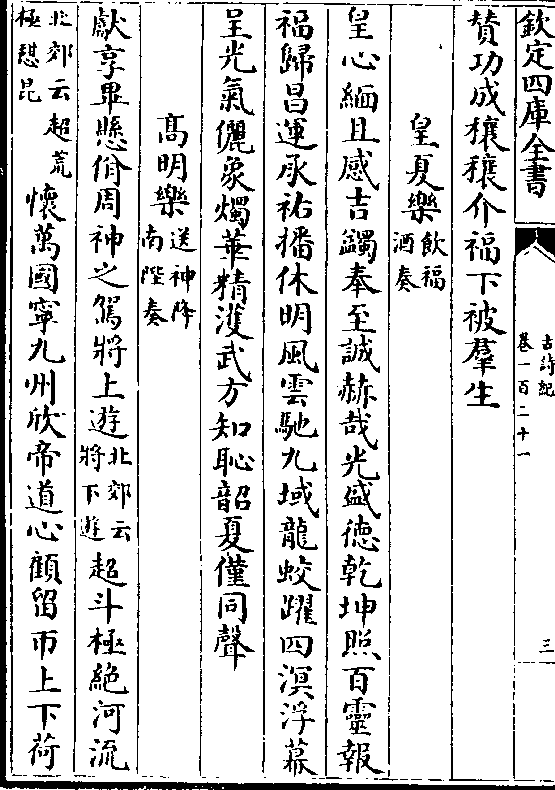 欽定四庫全書
古詩紀
卷一百二十一
三
賛功成穰穰介福下被羣生
皇夏樂飲福
酒奏
皇心緬且感吉蠲奉至誠赫哉光盛德乾坤照百靈報
福歸昌運承祐播休明風雲馳九域龍蛟躍四溟浮幕
呈光氣儷象燭華精濩武方知恥韶夏僅同聲
髙明樂送神降
南陛奏
獻享畢懸佾周神之駕將上遊北郊云
將下遊超斗極絶河流
北郊云超荒
極憇昆懷萬國寧九州欣帝道心顧留帀上下荷